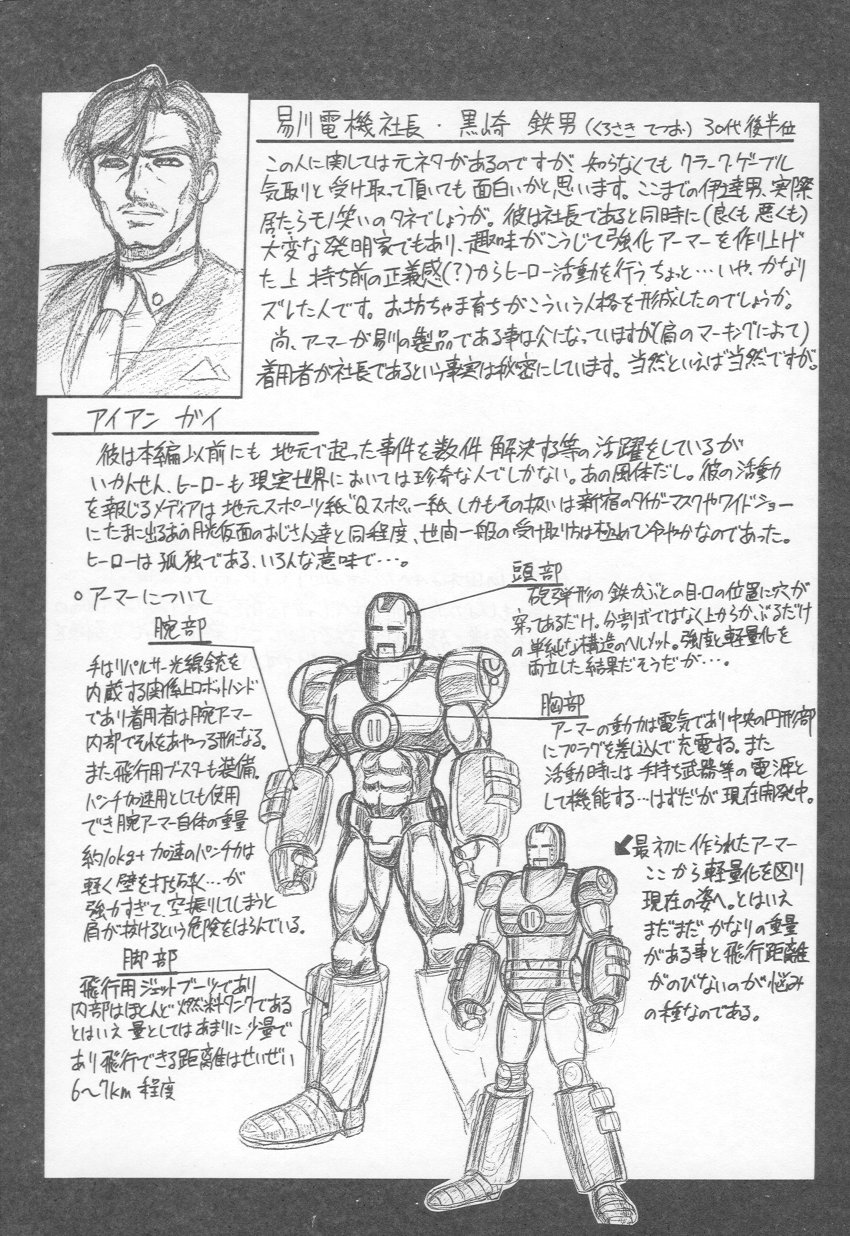 易川電機社長・黒崎 鉄男(くろさき てつお) 30代後半位
この人に関しては元ネタがあるのですが 知らなくても クラーク・ゲーブル
気取りと受け取って頂いても 面白いかと思います。ここまでの伊達男、実際
居たらモノ笑いのタネでしょうが。彼は社長であると同時に(良くも悪くも)
大変な発明家でもあり、趣味がこうじて強化アーマーを作り上げ
た上 持ち前の正義感(?)からヒーロー活動を行うちょっと…いや、かなり
ズレた人です。お坊ちゃま育ちがこういう人格を形成したのでしょうか。
尚、アーマーが易川の製品である事は公になっていますが(肩のマーキングによって)
着用者が社長であるという事実は秘密にしています。当然といえば当然ですが。
アイアン ガイ
彼は本編以前にも 地元で起った事件を数件 解決する等の活躍をしているが
いかんせん、ヒーローも現実世界においては珍奇な人でしかない。あの風体だし。彼の活動
を報じるメディアは地元スポーツ紙"Qスポ"一紙、しかもその扱いは新宿のタイガーマスクやワイドショー
にたまに出るあの月光仮面のおじさん達と同程度、世間一般の受け取り方は極めて冷やかなのであった。
ヒーローは孤独である、いろんな意味で…。
○アーマーについて
頭部
砲弾形の鉄かぶとの目・口の位置に穴が
穿ってあるだけ。分割式ではなく上からかぶるだけ
の単純な構造のヘルメット。強度と軽量化を
両立した結果だそうだが…。
腕部
手はリパルサー光線銃を
内蔵する関係上ロボットハンド
であり着用者は腕アーマー
内部でそれをあやつる形になる。
また飛行用ブースターも装備。
パンチ加速用としても使用
でき腕アーマー自体の重量
約10kg+加速のパンチ力は
軽く壁を打ち砕く…が
強力すぎて、空振りしてしまうと
肩が抜けるという危険をはらんでいる。
胸部
アーマーの動力は電気であり中央の円形部
にプラグを差し込んで充電する。また
活動時には手持ち武器等の電源と
して機能する…はずだが現在開発中。
最初に作られたアーマー
ここから軽量化を図り
現在の姿へ。とはいえ
まだまだかなりの重量
がある事と飛行距離
がのびないのが悩み
の種なのである。
脚部
飛行用ジェットブーツであり
内部はほとんど燃料タンクである
とはいえ 量としてはあまりに少量で
あり飛行できる距離はせいぜい
6〜7km 程度